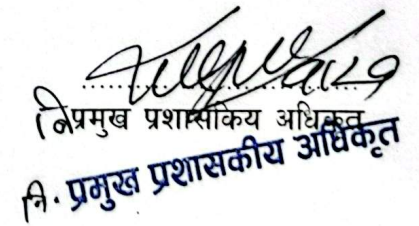 नि प्रमुख प्रशासकिय अधिकृत
नि. प्रमुख प्रशासकीय अधिकृत